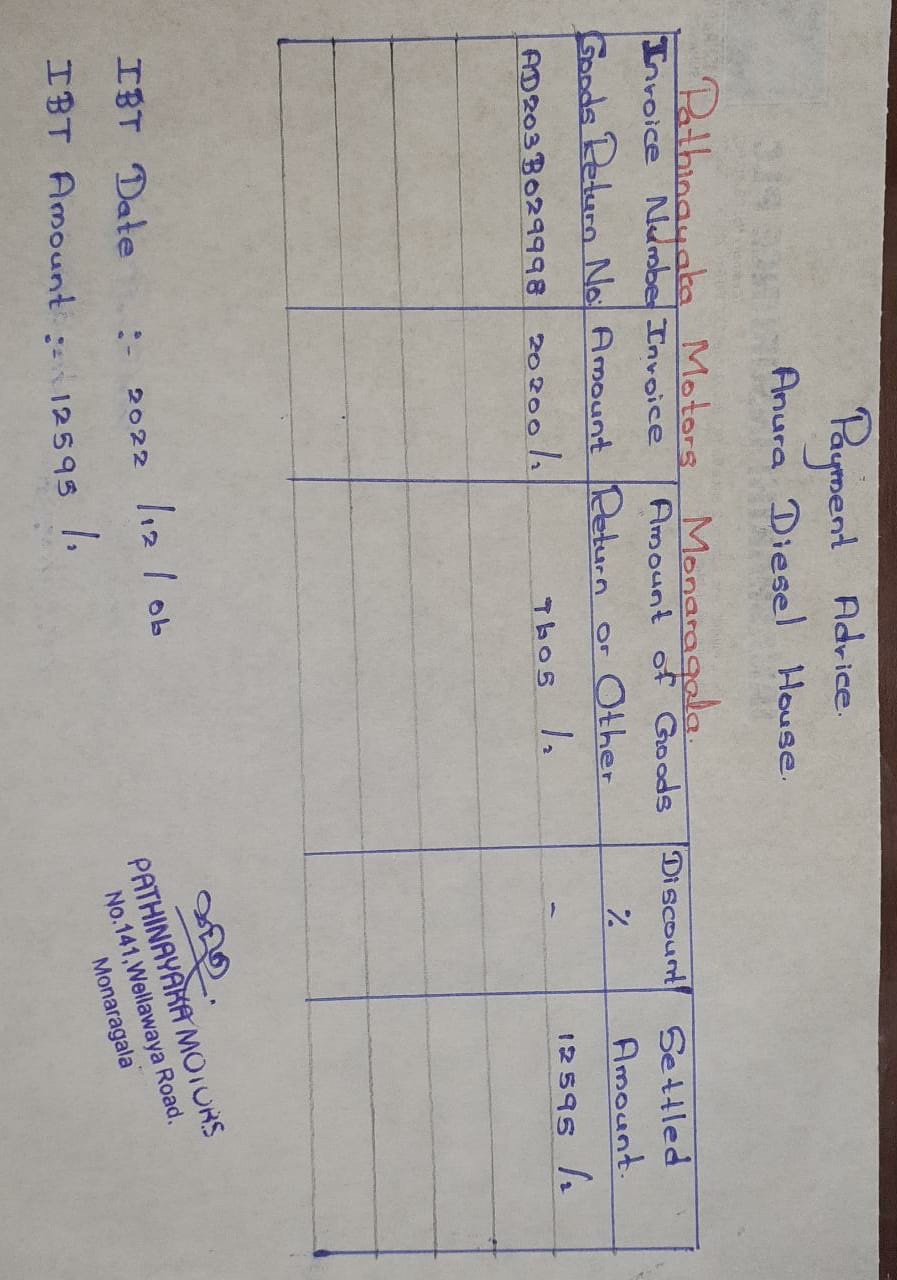 Payment Advice.
Anura Diesel House.
Pathinayaka Motors Monaragala.
Invoice Number Invoice Amount of Goods Discount Settled
Goods Return No: Amount Return or Other % Amount.
AD203B029998 20200/= 7605/= - 12595/=
IBT Date :- 2022/12/06
IBT Amount :- 12595/=
PATHINAYAKA MOTORS
No.141, Wellawaya Road.
Monaragala